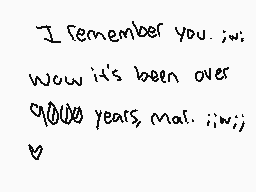 I remember you. ;w;
Wow it's been over
9000 years, mar. ;;w;;
♡